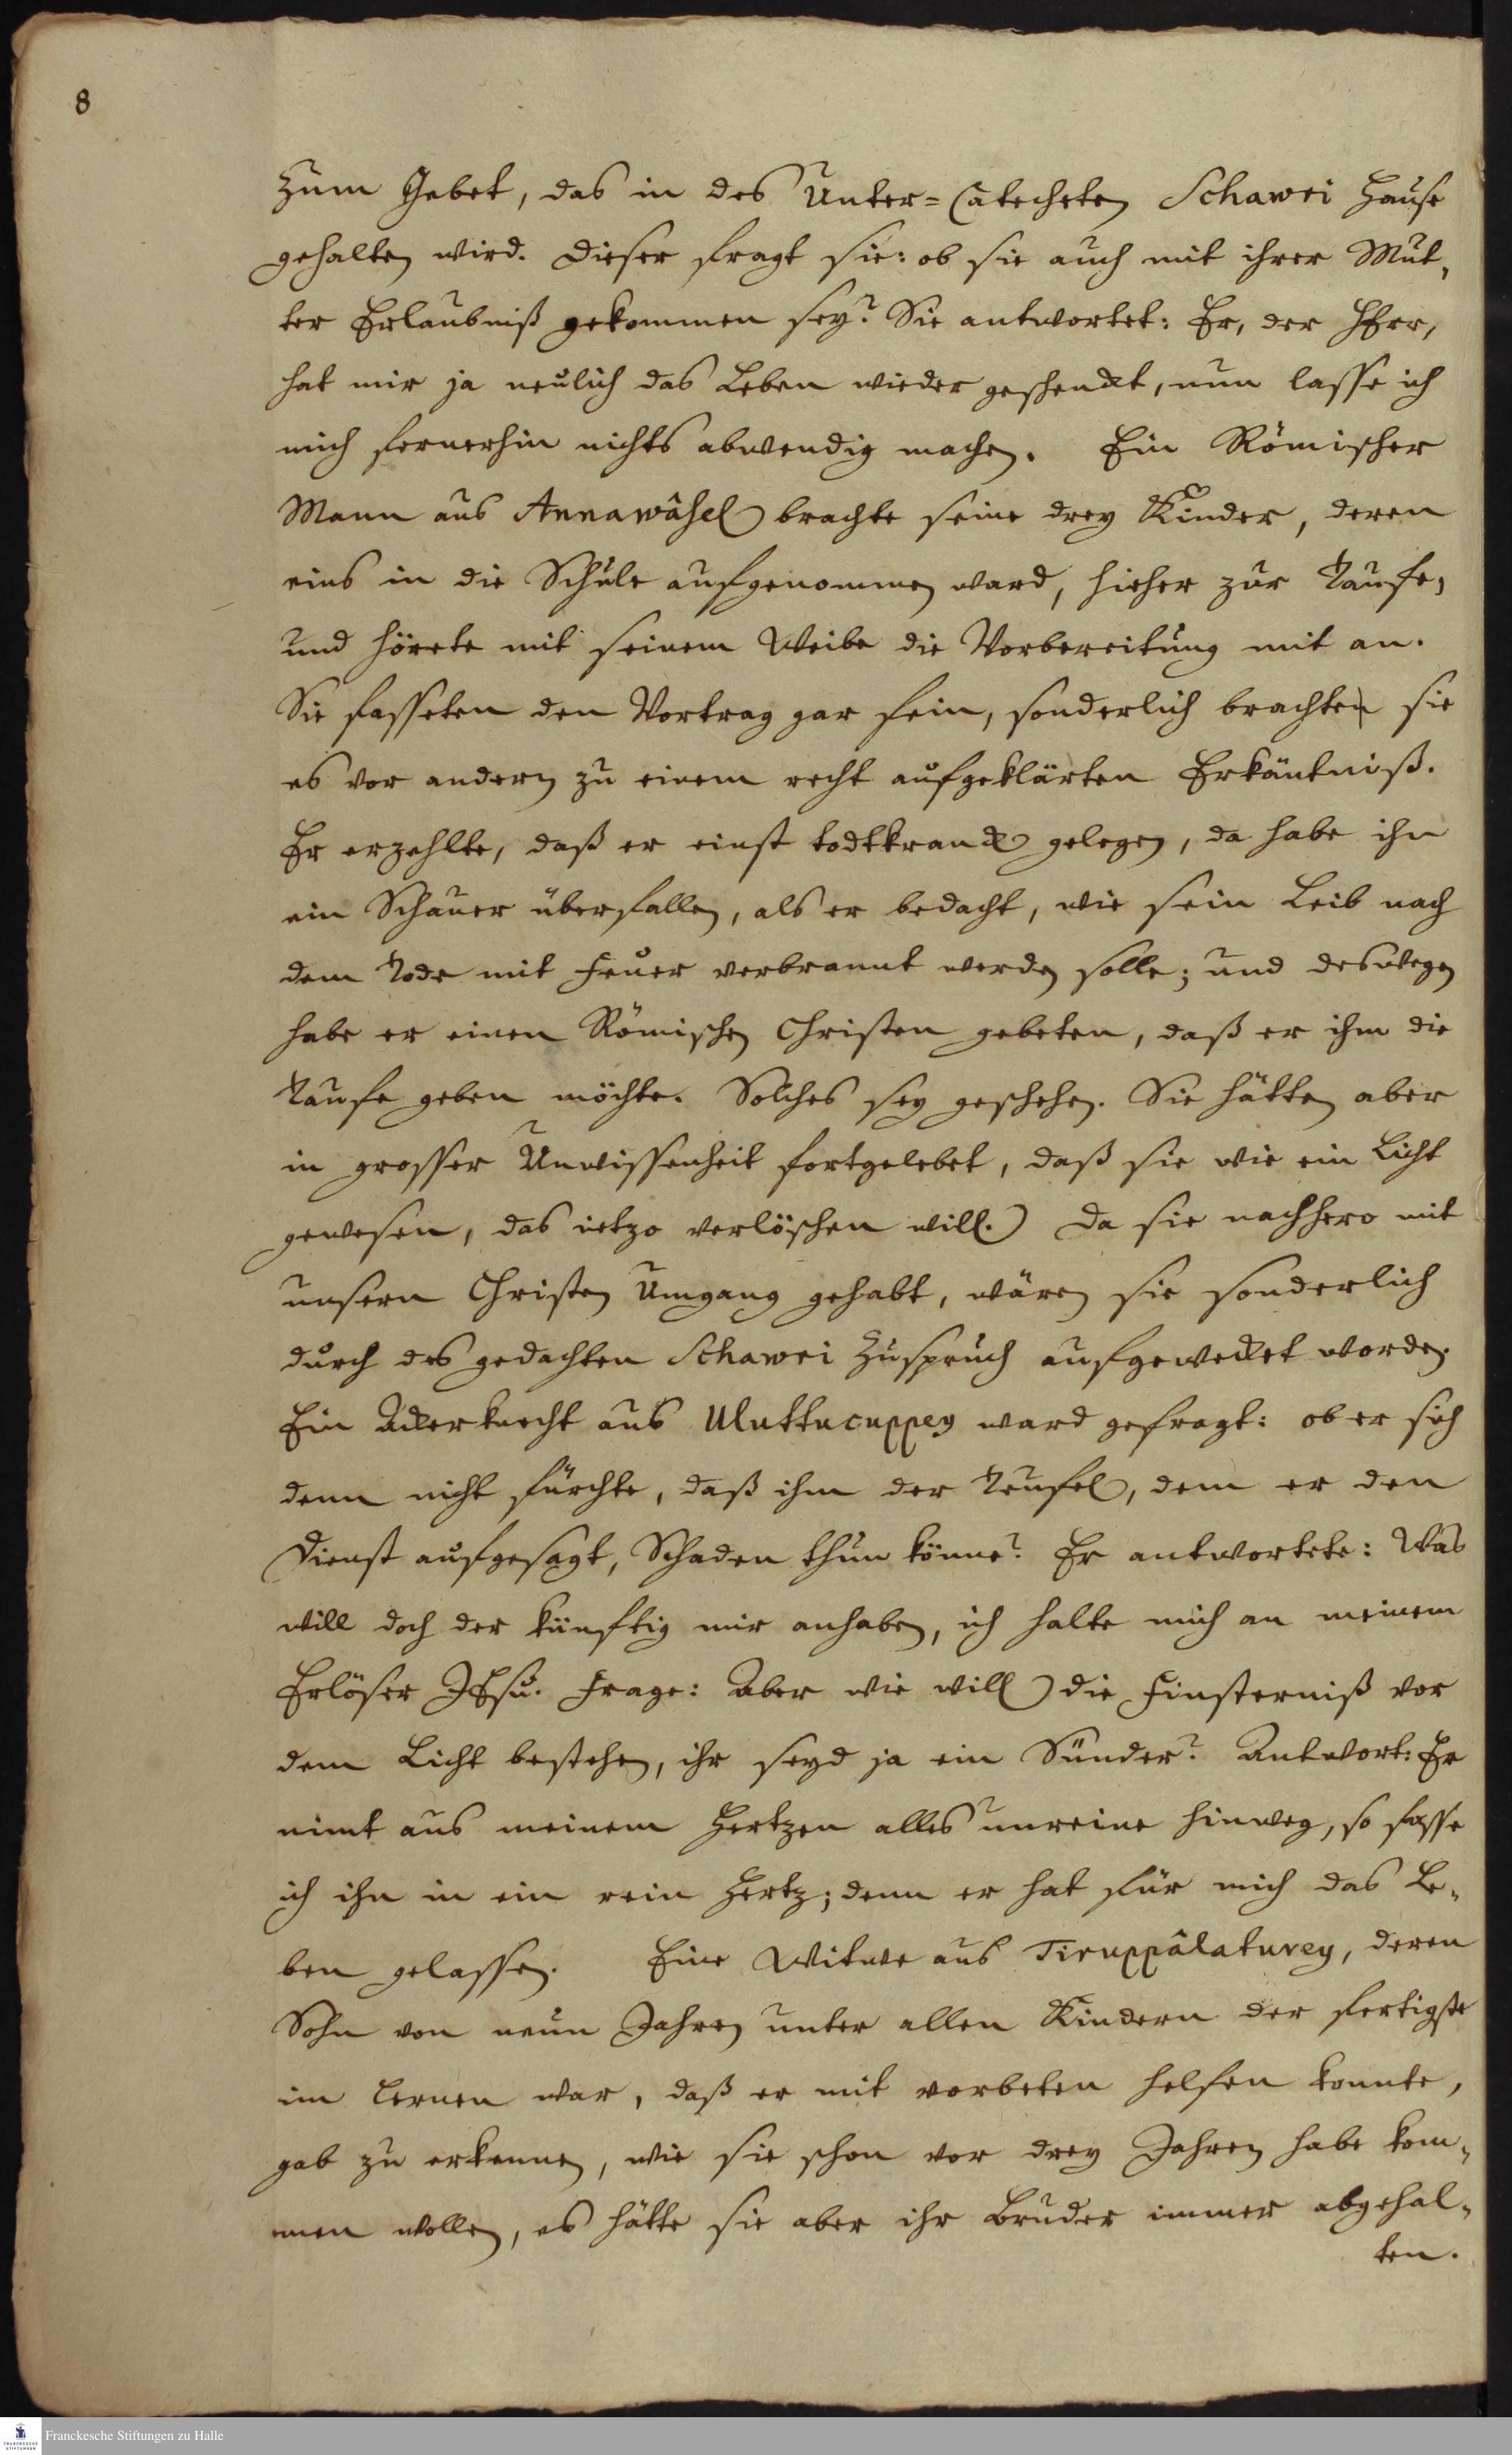 8
zum Gebet, das in des Unter=Catecheten Schawri Hause
gehalten wird. Dieser fragt sie: ob sie auch mit ihrer Mut-
ter Erlaubniß gekommen sey? Sie antwortet: Er, der HErr,
hat mir ja neulich das Leben wieder geschenckt, nun lasse ich
mich fernerhin nichts abwendig machen. Ein Römischer
Mann aus Annawâsel brachte seine drey Kinder, deren
eins in die Schule aufgenommen ward, hieher zur Taufe,
und hörete mit seinem Weibe die Vorbereitung mit an.
Sie fasseten den Vortrag gar fein, sonderlich brachten sie
es vor andern zu einem recht aufgeklärten Erkäntniß.
Er erzehlte, daß er einst todtkranck gelegen, da habe ihn
ein Schauer überfallen, als er bedacht, wie sein Leib nach
dem Tode mit Feuer verbrannt werden solle; und deswegen
habe er einen Römischen Christen gebeten, daß er ihm die
Taufe geben möchte. Solches sey geschehen. Sie hätten aber
in grosser Unwissenheit fortgelebet, daß sie wie ein Licht
gewesen, das ietzo verlöschen will. Da sie nachhero mit
unsern Christen Umgang gehabt, wären sie sonderlich
durch des gedachten Schawri Zuspruch aufgewecket worden.
Ein Ackerknecht aus Uluttucuppey ward gefragt: ob er sich
denn nicht fürchte, daß ihm der Teufel, dem er den
Dienst aufgesagt, Schaden thun könne? Er antwortete: Was
will doch der künftig mir anhaben, ich halte mich an meinem
Erlöser JEsu. Frage: Aber wie will die Finsterniß vor
dem Licht bestehen, ihr seyd ja ein Sünder? Antwort: Er
nimt aus meinem Hertzen alles unreine hinweg, so fasse
ich ihn in ein rein Hertz; denn er hat für mich das Le-
ben gelassen. Eine Witwe aus Tiruppâlaturey, deren
Sohn von neun Jahren unter allen Kindern der fertigste
im Lernen war, daß er mit vorbeten helfen konnte,
gab zu erkennen, wie sie schon vor drey Jahren habe kom-
men wollen, es hätte sie aber ihr Bruder immer abgehal-
ten.
Franckesche Stiftungen zu Halle